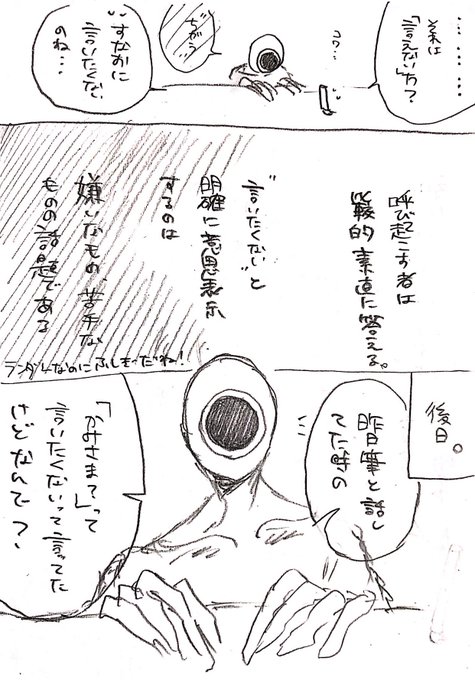 ………
………
それは
「言えない」の？
コワ…
ちがう
すなおに
言いたくない
のね…
呼び起こす者は
比較的素直に答える。
"言いたくない"と
明確に意思表示
するのは
嫌いなもの 苦手な
ものの話題である
ランダムなのにふしぎだね!
後日。
昨日筆と話し
てた時の
「かみさま？」って
言いたくないって言ってた
けどなんで？